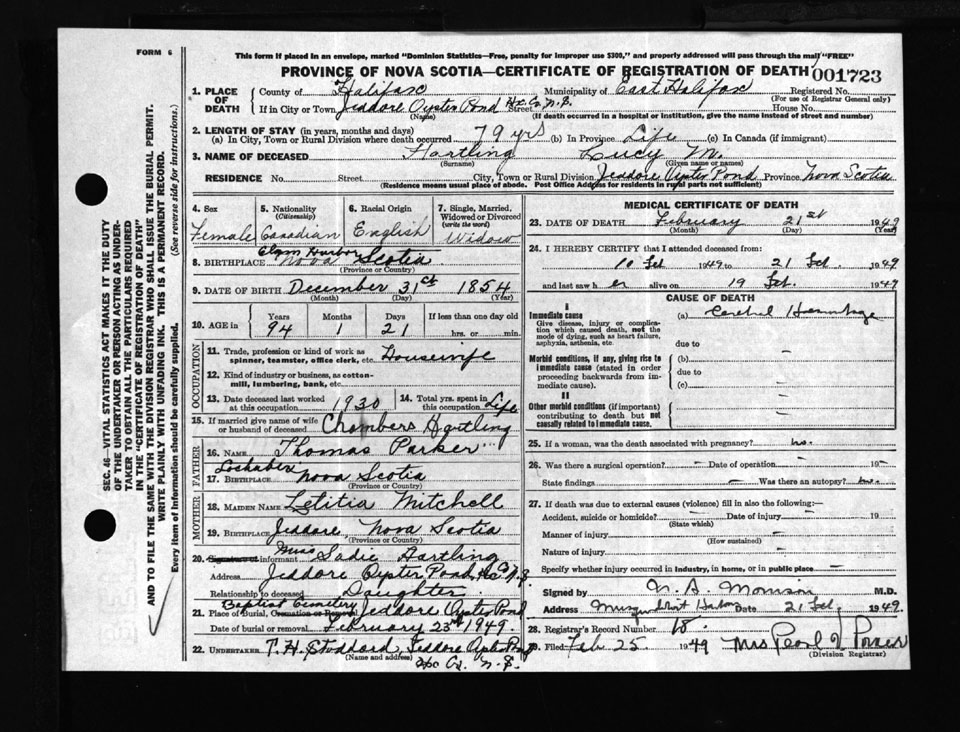 FORM 6
This form if placed in an envelope, marked "Dominion Statistics—Free, penalty for improper use $300," and property addressed will pass through the mail "FREE"
PROVINCE OF NOVA SCOTIA—CERTIFICATE OF REGISTRATION OF DEATH 001723
1. PLACE OF DEATH
County of Halifax Municipality of East Halifax Registered No.
(For use of Registrar General only)
If in City or Town Jeddore Oyster Pond Street Hx. Co. N.S. House No.
(Name) (If death occurred in a hospital or institution, give the name instead of street and number)
2. LENGTH OF STAY (in years, months and days)
(a) In City, Town or Rural Division where death occurred 79 yrs (b) In Province Life (c) In Canada (if immigrant)
3. NAME OF DECEASED Hartling Lucy M.
(Surname) (Given name or names)
RESIDENCE No. Street City, Town or Rural Division Jeddore Oyster Pond Province Nova Scotia
(Residence means usual place of abode. Post Office Address for residents in rural parts not sufficient)
4. Sex
Female
5. Nationality (Citizenship)
Canadian
6. Racial Origin
English
7. Single, Married, Widowed or Divorced (write the word)
Widow
8. BIRTHPLACE Harbor Nova Scotia
(Province or Country)
9. DATE OF BIRTH December 31st 1854
(Month) (Day) (Year)
10. AGE in
Years Months Days If less than one day old
94 1 21 hrs. or min.
OCCUPATION
11. Trade, profession or kind of work as spinner, teamster, office clerk, etc. Housewife
12. Kind of industry or business, as cotton-mill, lumbering, bank, etc.
13. Date deceased last worked at this occupation 1930 14. Total yrs. spent in this occupation Life
15. If married give name of wife or husband of deceased Chambers Hartling
FATHER
16. NAME Thomas Parker
17. BIRTHPLACE Lochaber Nova Scotia
(Province or Country)
MOTHER
18. MAIDEN NAME Letitia Mitchell
19. BIRTHPLACE Jeddore Nova Scotia
(Province or Country)
20. Signature of informant Miss Sadie Hartling
Address Jeddore Oyster Pond, Hx Co N.S.
Relationship to deceased Daughter
21. Place of Burial, Cremation or Removal Baptist Cemetery Jeddore Oyster Pond
Date of burial or removal February 23rd 1949
22. UNDERTAKER T. H. Stoddard, Jeddore Oyster Pond
(Name and address) Hx Co. N.S.
MEDICAL CERTIFICATE OF DEATH
23. DATE OF DEATH February 21st 1949
(Month) (Day) (Year)
24. I HEREBY CERTIFY that I attended deceased from:
10 Feb 1949 to 21 Feb. 1949
and last saw her alive on 19 Feb. 1949
CAUSE OF DEATH
I
Immediate cause (a)
Give disease, injury or complication which caused death, not the mode of dying, such as heart failure, asphyxia, asthenia, etc.
due to
Morbid conditions, if any, giving rise to immediate cause (stated in order proceeding backwards from immediate cause).
(b)
due to
(c)
II
Other morbid conditions (if important) contributing to death but not causally related to immediate cause.
25. If a woman, was the death associated with pregnancy? no.
26. Was there a surgical operation? – Date of operation – 19 –
State findings – Was there an autopsy? no.
27. If death was due to external causes (violence) fill in also the following:—
Accident, suicide or homicide? Date of injury 19
(State which)
Manner of injury
(How sustained)
Nature of injury
Specify whether injury occurred in industry, in home, or in public place
Signed by M.D.
Address Musquodoboit Harbor Date 21 Feb 1949
28. Registrar's Record Number 18.
29. Filed Feb 25 1949 Mrs Pearl
(Division Registrar)
SEC. 46—VITAL STATISTICS ACT MAKES IT THE DUTY
OF THE UNDERTAKER OR PERSON ACTING AS UNDER-
TAKER TO OBTAIN ALL THE PARTICULARS REQUIRED
IN THE "CERTIFICATE OF REGISTRATION OF DEATH"
AND TO FILE THE SAME WITH THE DIVISION REGISTRAR WHO SHALL ISSUE THE BURIAL PERMIT.
WRITE PLAINLY WITH UNFADING INK. THIS IS A PERMANENT RECORD.
Every item of Information should be carefully supplied. (See reverse side for instructions.)